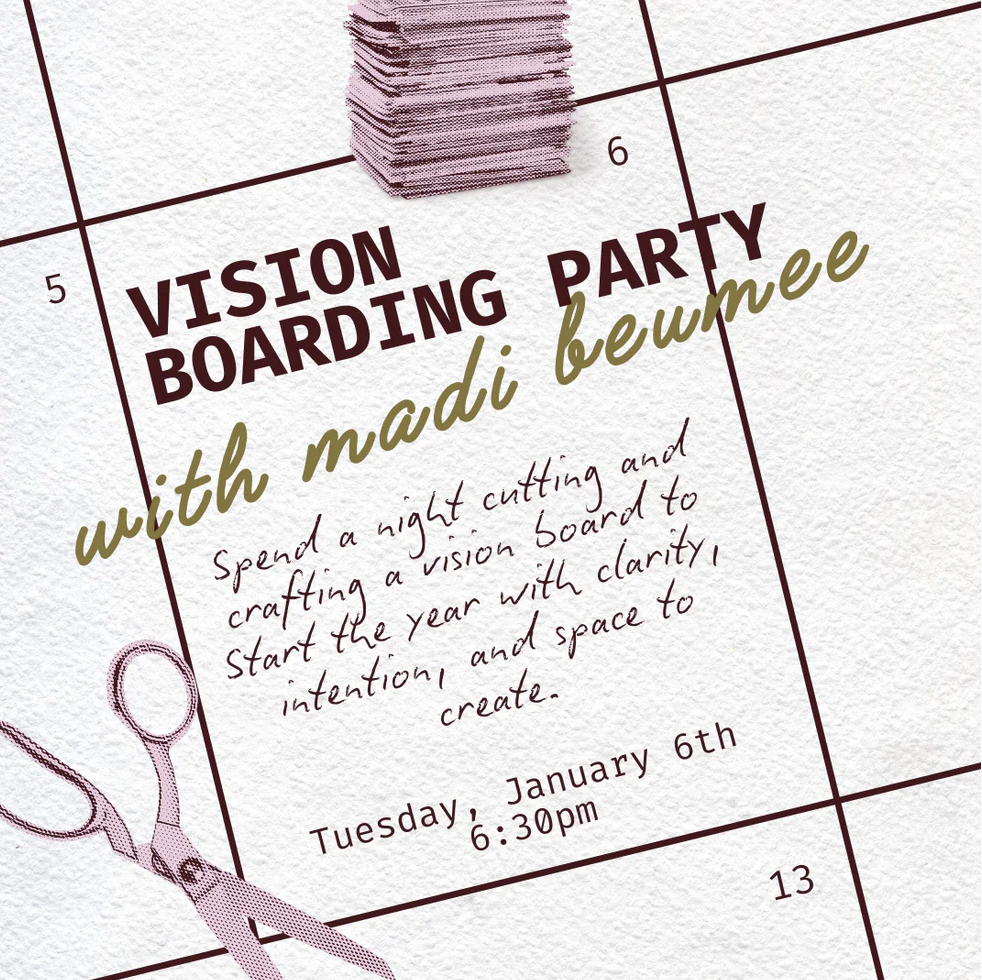 6
5
VISION
BOARDING PARTY
with madi beumee
Spend a night cutting and
crafting a vision board to
start the year with clarity,
intention, and space to
create.
Tuesday, January 6th
6:30pm
13